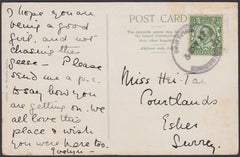 I hope you are
being a good
girl, and not
chasing the
geese - Please
send me a p.c.
to say how you
are getting on. We
all love this
place & wish
you were here too.
Evelyn
POST CARD
Miss
Courtlands
Esher
Surrey